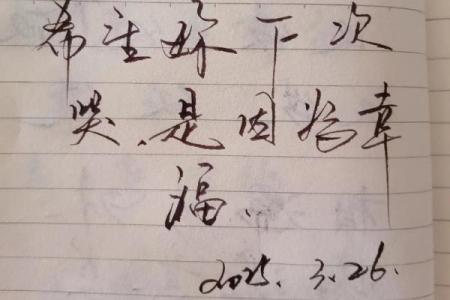 希望妳下次
哭、是因为幸
福、
2025.3.26.